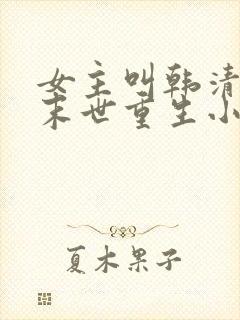 女主叫韩清
末世重生小
夏木果子